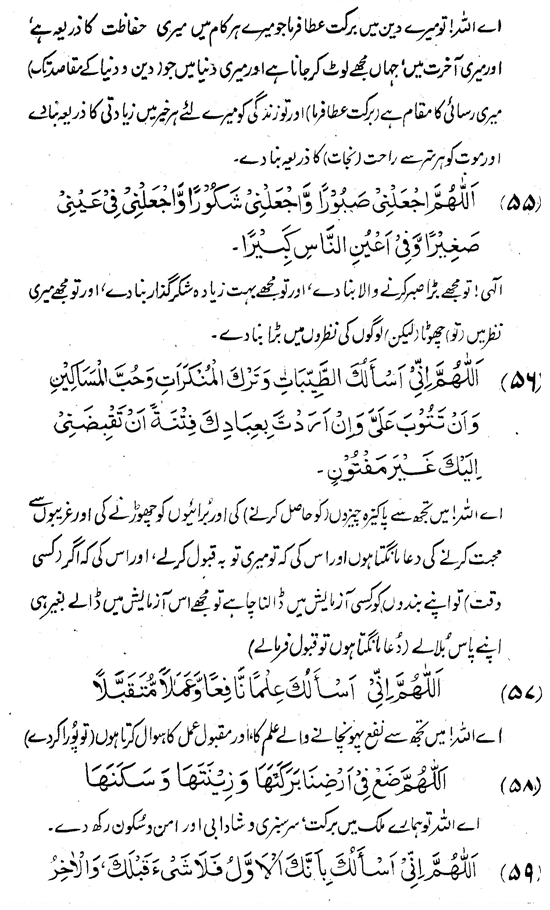 اے اللہ! تو میرے دین میں برکت عطا فرما جو میرے ہر کام میں میری حفاظت کا ذریعہ ہے،
اور میری آخرت میں، جہاں مجھے لوٹ کر جانا ہے اور میری دنیا میں جو (دین و دنیا کے مقاصد تک)
میری رسائی کا مقام ہے (برکت عطا فرما) اور تو زندگی کو میرے لئے ہر خیر میں زیادتی کا ذریعہ بنا دے
اور موت کو ہر شر سے راحت (نجات) کا ذریعہ بنا دے۔
(۵۵) اَللّٰهُمَّ اجْعَلْنِیْ صَبُوْرًا وَّاجْعَلْنِیْ شَكُوْرًا وَّاجْعَلْنِیْ فِیْ عَیْنِیْ
صَغِیْرًا وَّفِیْ اَعْیُنِ النَّاسِ كَبِیْرًا۔
الٰہی! تو مجھے بڑا صبر کرنے والا بنا دے، اور تو مجھے بہت زیادہ شکر گذار بنا دے، اور تو مجھے میری
نظر میں (تو) چھوٹا (لیکن) لوگوں کی نظروں میں بڑا بنا دے۔
(۵۶) اَللّٰهُمَّ اِنِّیْ اَسْاَلُكَ الطَّیِّبَاتِ وَتَرْكَ الْمُنْكَرَاتِ وَحُبَّ الْمَسَاكِیْنِ
وَاَنْ تَتُوْبَ عَلَیَّ وَاِنْ اَرَدْتَّ بِعِبَادِكَ فِتْنَةً اَنْ تَقْبِضَنِیْ
اِلَیْكَ غَیْرَ مَفْتُوْنٍ۔
اے اللہ! میں تجھ سے پاکیزہ چیزوں (کو حاصل کرنے) کی اور برائیوں کو چھوڑنے کی اور غریبوں سے
محبت کرنے کی دعا مانگتا ہوں اور اس کی کہ تو میری توبہ قبول کرلے، اور اس کی کہ اگر (کسی
وقت) تو اپنے بندوں کو کسی آزمایش میں ڈالنا چاہے تو مجھے اس آزمایش میں ڈالے بغیر ہی
اپنے پاس بُلالے (دُعا مانگتا ہوں تو قبول فرمالے)
(۵۷) اَللّٰهُمَّ اِنِّیْ اَسْاَلُكَ عِلْمًا نَّافِعًا وَّعَمَلًا مُّتَقَبَّلًا
اے اللہ! میں تجھ سے نفع پہونچانے والے علم کا، اور مقبول عمل کا سوال کرتا ہوں (تو پُورا کر دے)
(۵۸) اَللّٰهُمَّ ضَعْ فِیْ اَرْضِنَا بَرَكَتَهَا وَزِیْنَتَهَا وَسَكَنَهَا
اے اللہ تو ہمارے ملک میں برکت، سرسبزی و شادابی اور امن و سُکون رکھ دے۔
(۵۹) اَللّٰهُمَّ اِنِّیْ اَسْاَلُكَ بِاَنَّكَ الْاَوَّلُ فَلَا شَیْءَ قَبْلَكَ، وَالْاٰخِرُ